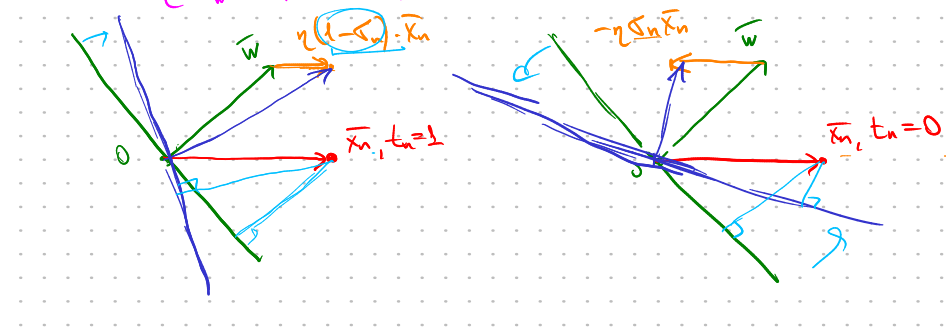 η(1-σₙ)·x̄ₙ
w̄
x̄ₙ, tₙ=1
0
-ησₙx̄ₙ
w̄
x̄ₙ, tₙ=0